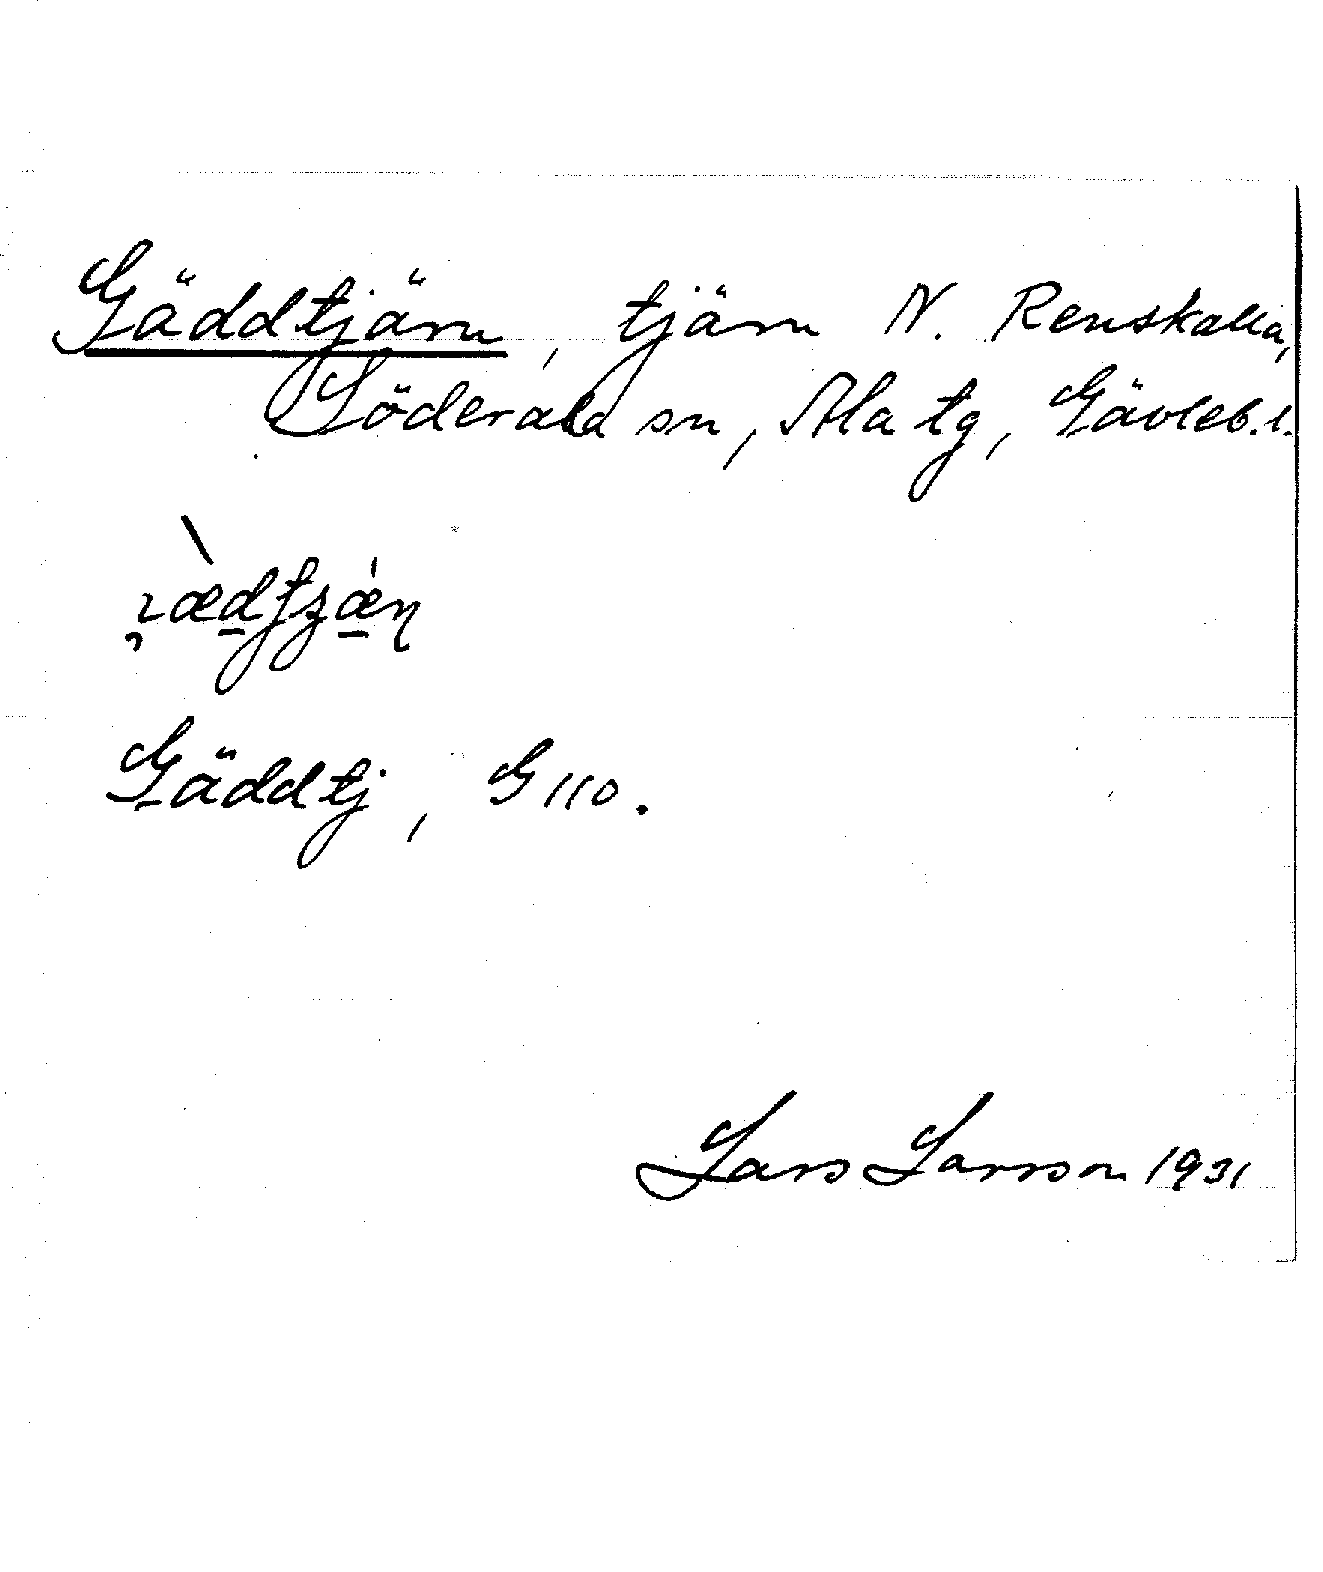 Gäddtjärn, tjärn N. Renskalla,
Söderala sn, Ala tg, Gävleb.l.
Gäddtj, G 110.
Lars Larsson 1931